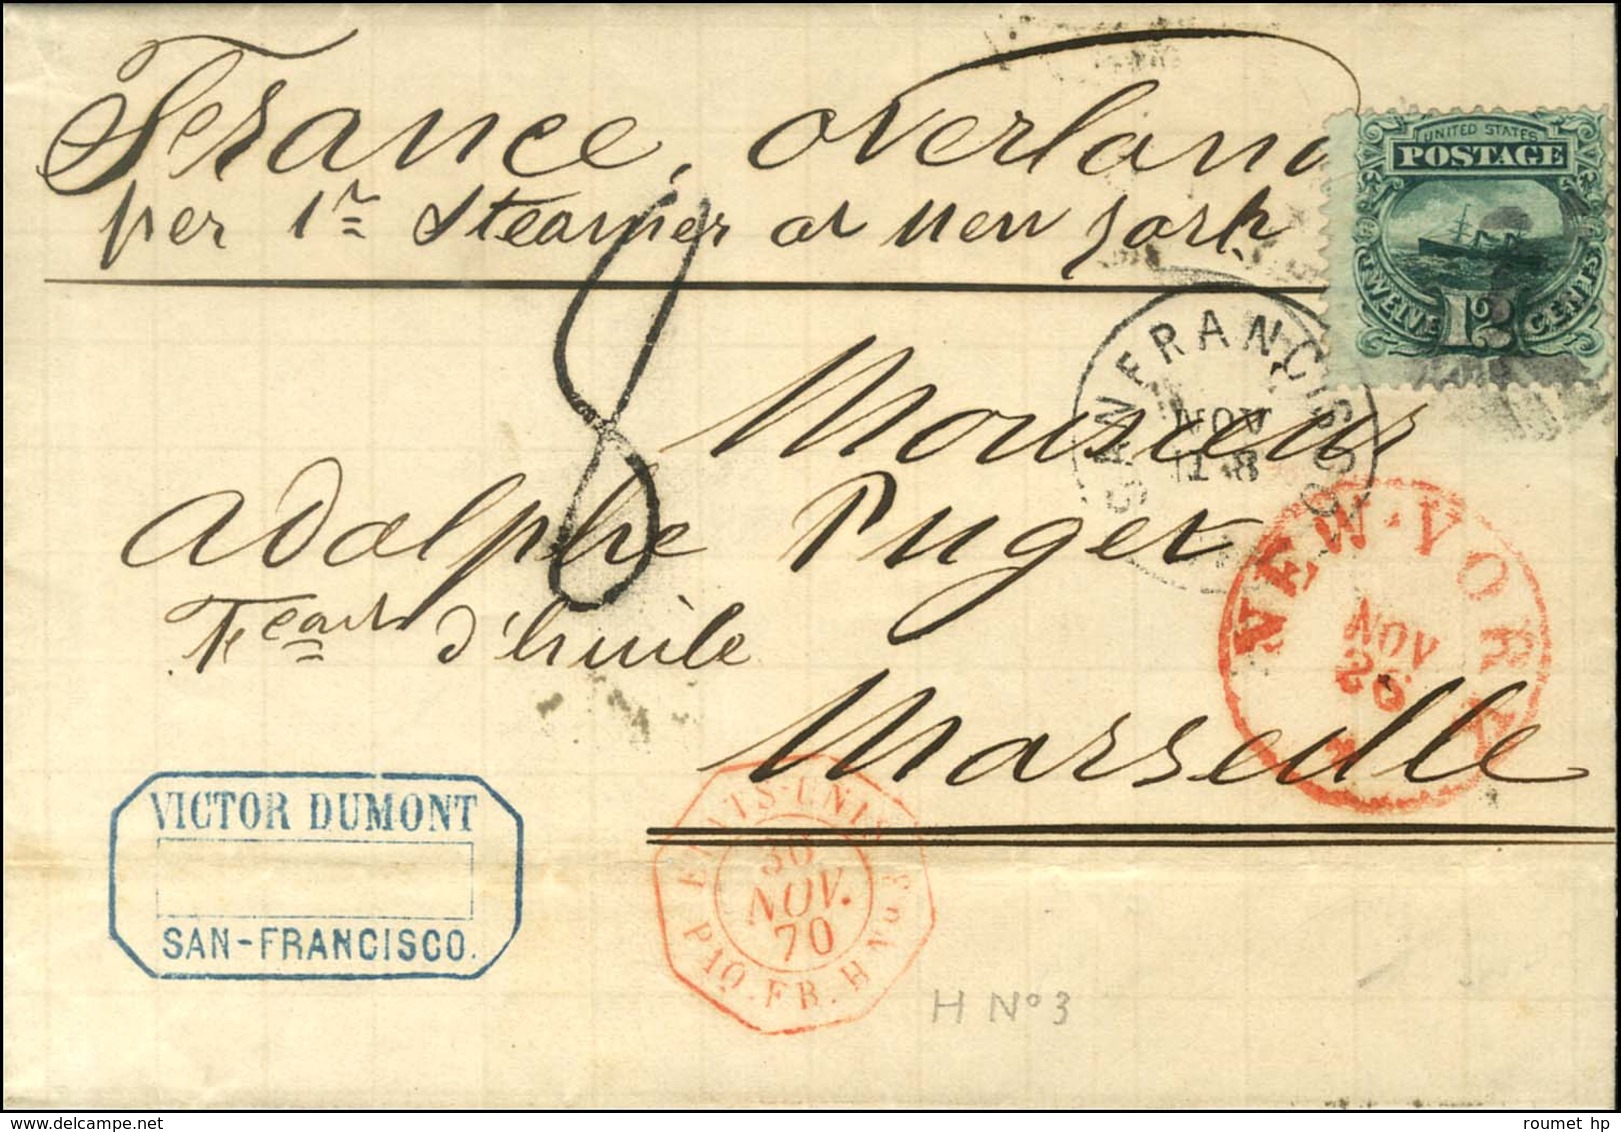 France, overland
per 1er Steamer at New York
UNITED STATES
POSTAGE
TWELVE 12 CENTS
8
SAN FRANCISCO
NOV
18
Monsieur
Adolphe Puget
Fcant d'huile
Marseille
NEW-YORK
NOV
26
VICTOR DUMONT
SAN-FRANCISCO.
ETATS-UNIS
30
NOV.
70
PAQ. FR. H No 3
H No 3
roumet hp